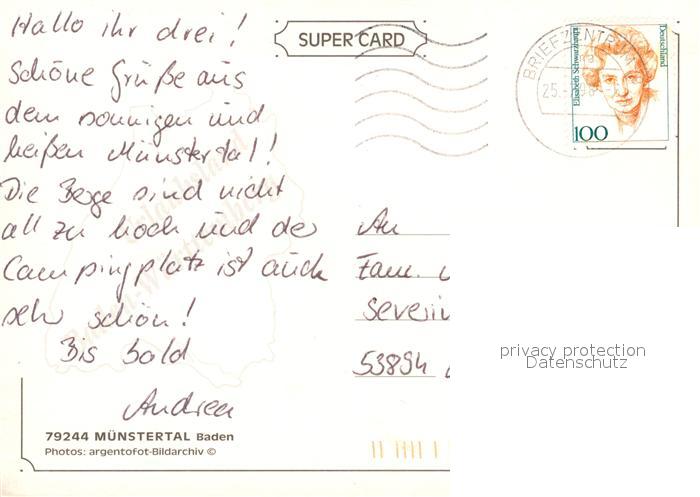 Hallo ihr drei!
Schöne Grüße aus
dem sonnigen und
heißen Münstertal!
Die Berge sind nicht
all zu hoch und der
Campingplatz ist auch
sehr schön!
Bis bald
Andrea
79244 MÜNSTERTAL Baden
Photos: argentofot-Bildarchiv ©
SUPER CARD
BRIEFZENTRUM
25.
Elisabeth Schwarzhaupt
Deutschland
100
An
Fam.
Severin
53894
privacy protection
Datenschutz
Urlaubsland
Baden-Württemberg